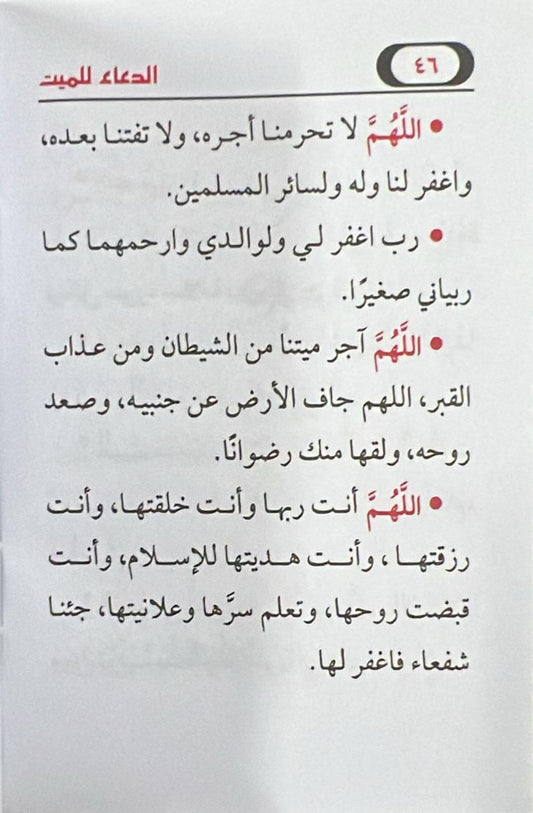 ٤٦
الدعاء للميت
• اللَّهُمَّ لا تحرمنا أجره، ولا تفتنا بعده،
واغفر لنا وله ولسائر المسلمين.
• رب اغفر لي ولوالدي وارحمهما كما
ربياني صغيرًا.
• اللَّهُمَّ آجر ميتنا من الشيطان ومن عذاب
القبر، اللهم جاف الأرض عن جنبيه، وصعد
روحه، ولقها منك رضوانًا.
• اللَّهُمَّ أنت ربها وأنت خلقتها، وأنت
رزقتها، وأنت هديتها للإسلام، وأنت
قبضت روحها، وتعلم سرَّها وعلانيتها، جئنا
شفعاء فاغفر لها.